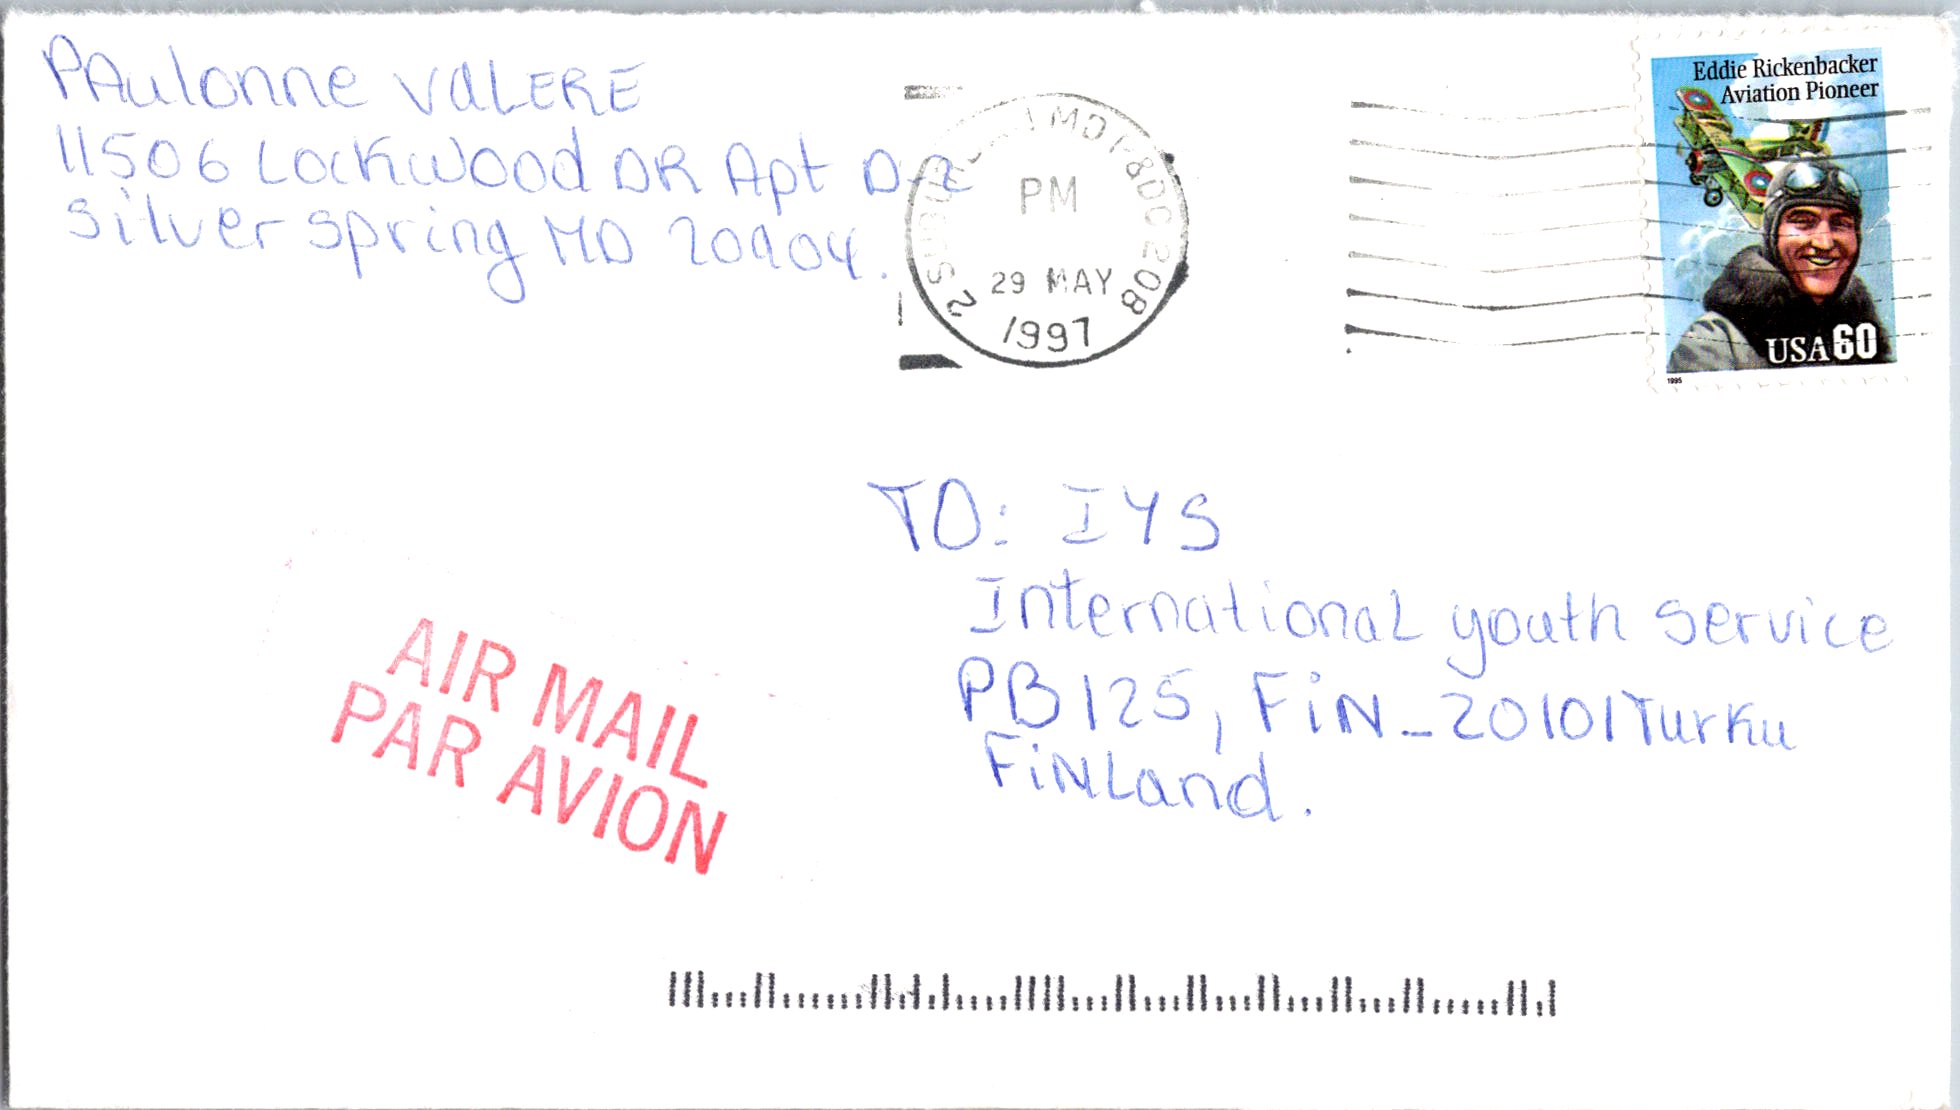 PAulonne VALERE
11506 Lockwood DR Apt D-2
silver spring MD 20904.
MD P&DC 208
PM
29 MAY
1997
Eddie Rickenbacker
Aviation Pioneer
USA 60
1995
TO: IYS
International youth service
PB 125, FiN_20101 Turku
FiNLand.
AIR MAIL
PAR AVION